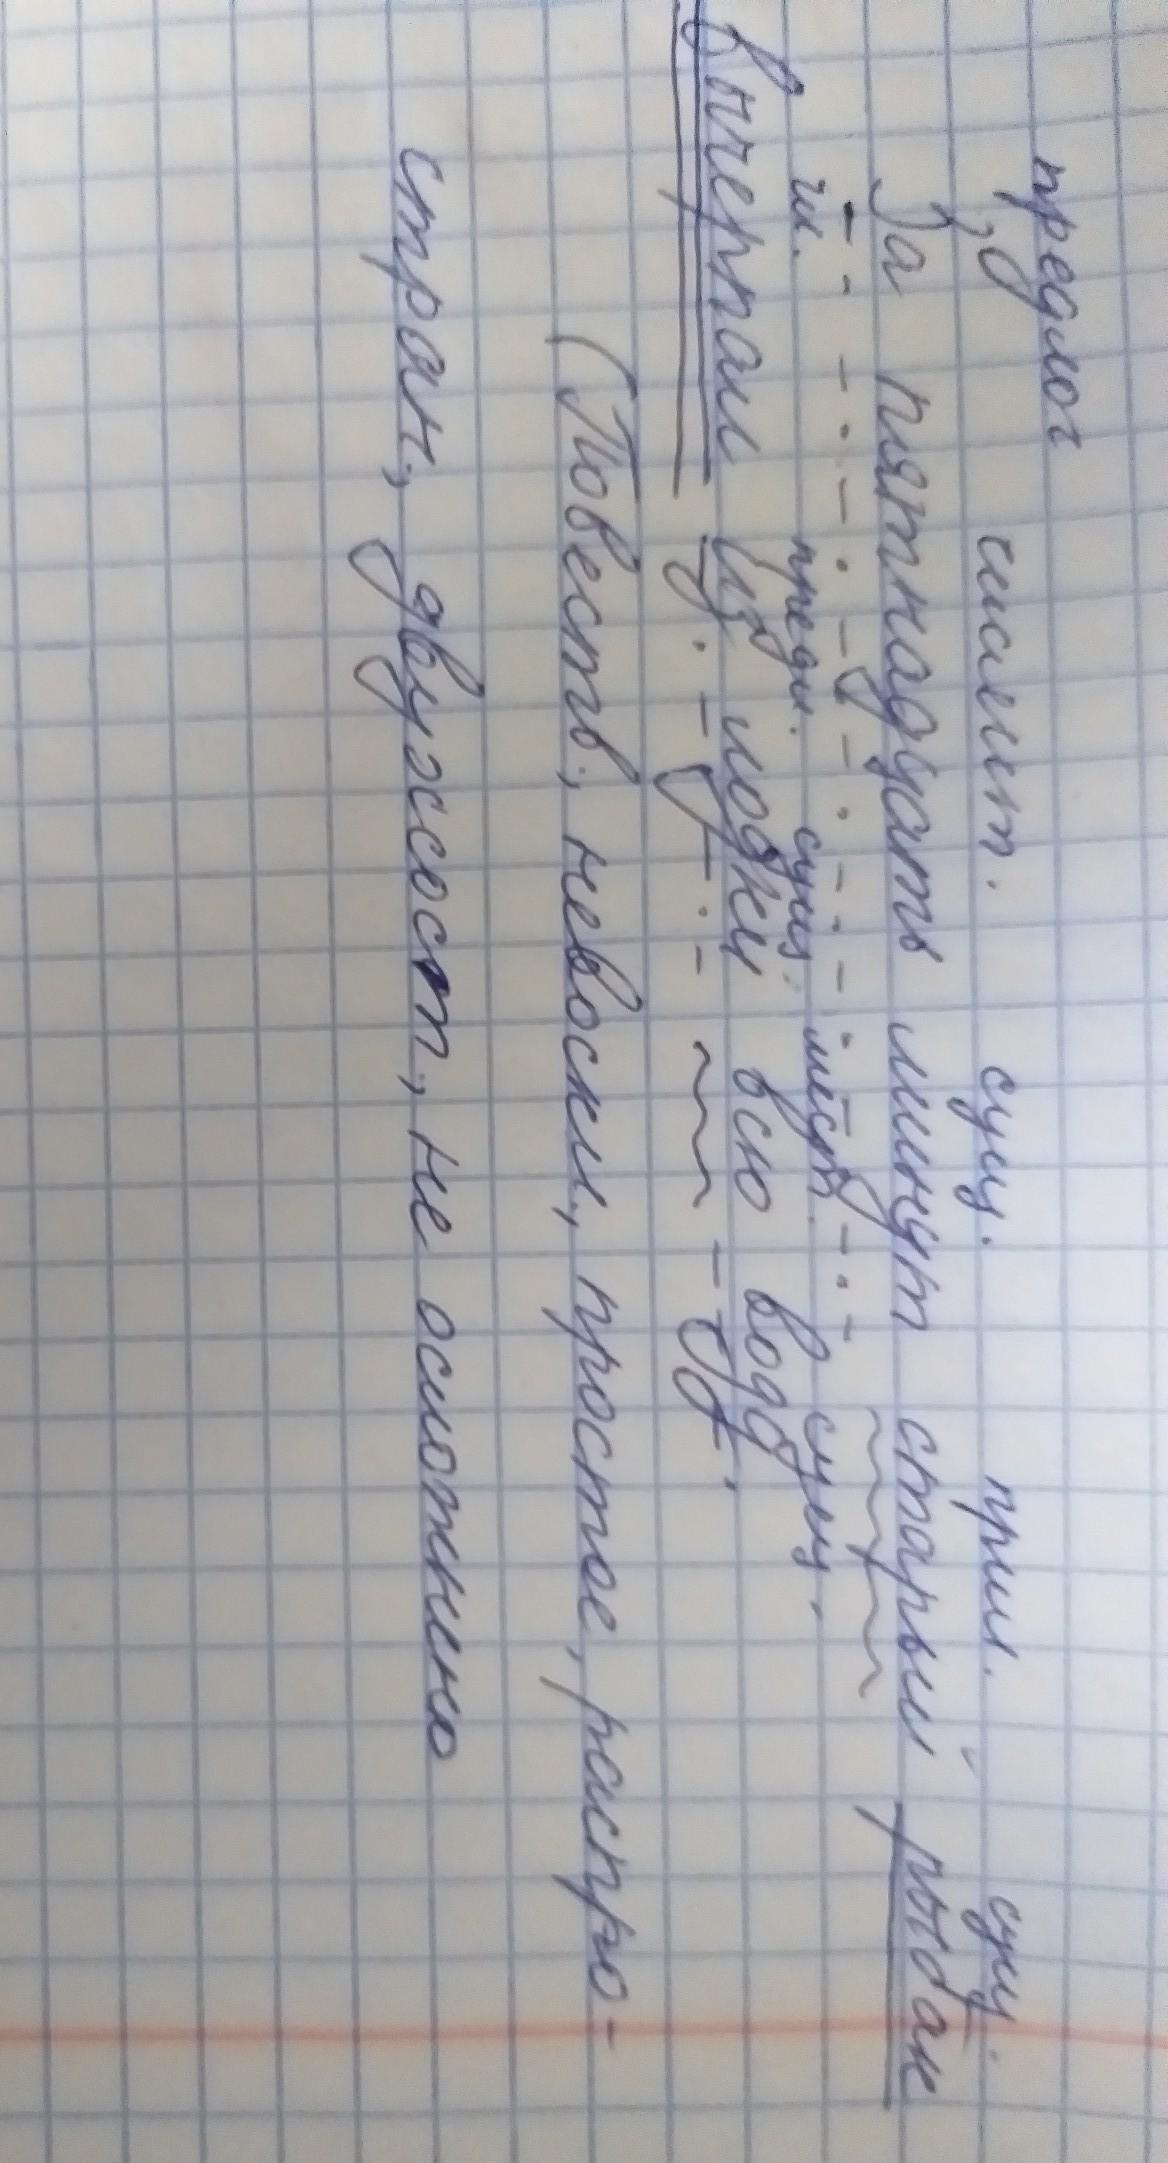 предлог числит. сущ. прил. сущ.
За пятнадцать минут старый рыбак
гл. предл. сущ. мест. сущ.
вычерпал из лодки всю воду.
(Повеств., невоскл., простое, распро-
стран., двухсост., не осложнено